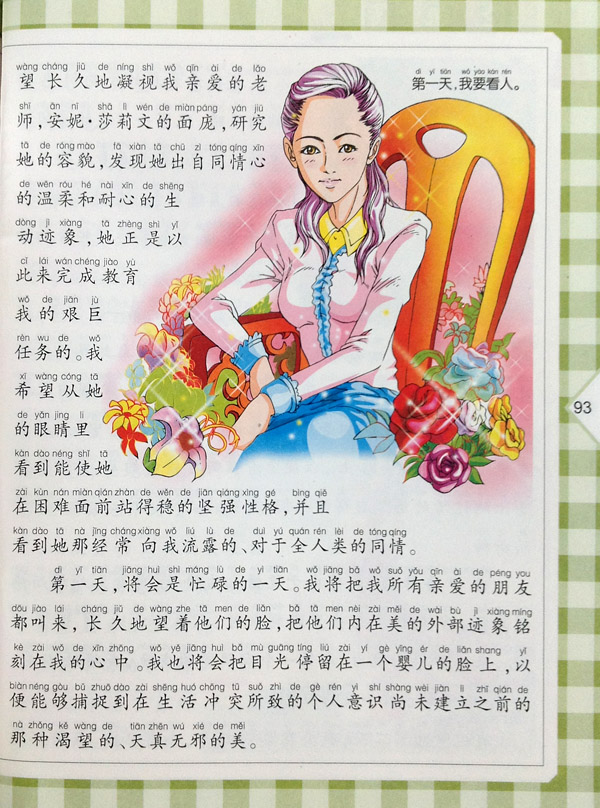 wàng cháng jiǔ de níng shì wǒ qīn ài de lǎo
望长久地凝视我亲爱的老
第一天,我要看人。
dì yī tiān wǒ yào kàn rén
shī ān nī shā lì wén de miàn páng yán jiū
师,安妮·莎莉文的面庞,研究
tā de róng mào fā xiàn tā chū zì tóng qíng xīn
她的容貌,发现她出自同情心
de wēn róu hé nài xīn de shēng
的温柔和耐心的生
dòng jì xiàng tā zhèng shì yǐ
动迹象,她正是以
cǐ lái wán chéng jiào yù
此来完成教育
wǒ de jiān jù
我的艰巨
rèn wu de wǒ
任务的。我
xī wàng cóng tā
希望从她
de yǎn jīng li
的眼睛里
kàn dào néng shǐ tā
看到能使她
zài kùn nán miàn qián zhàn de wěn de jiān qiáng xìng gé bìng qiě
在困难面前站得稳的坚强性格,并且
kàn dào tā nà jīng cháng xiàng wǒ liú lù de duì yú quán rén lèi de tóng qíng
看到她那经常向我流露的、对于全人类的同情。
dì yī tiān jiāng huì shì máng lù de yì tiān wǒ jiāng bǎ wǒ suǒ yǒu qīn ài de péng you
第一天,将会是忙碌的一天。我将把我所有亲爱的朋友
dōu jiào lái cháng jiǔ de wàng zhe tā men de liǎn bǎ tā men nèi zài měi de wài bù jì xiàng míng
都叫来,长久地望着他们的脸,把他们内在美的外部迹象铭
kè zài wǒ de xīn zhōng wǒ yě jiāng huì bǎ mù guāng tíng liú zài yí gè yīng ér de liǎn shang yǐ
刻在我的心中。我也将会把目光停留在一个婴儿的脸上,以
biàn néng gòu bǔ zhuō dào zài shēng huó chōng tū suǒ zhì de gè rén yì shi shàng wèi jiàn lì zhī qián de
便能够捕捉到在生活冲突所致的个人意识尚未建立之前的
nà zhǒng kě wàng de tiān zhēn wú xié de měi
那种渴望的、天真无邪的美。
93